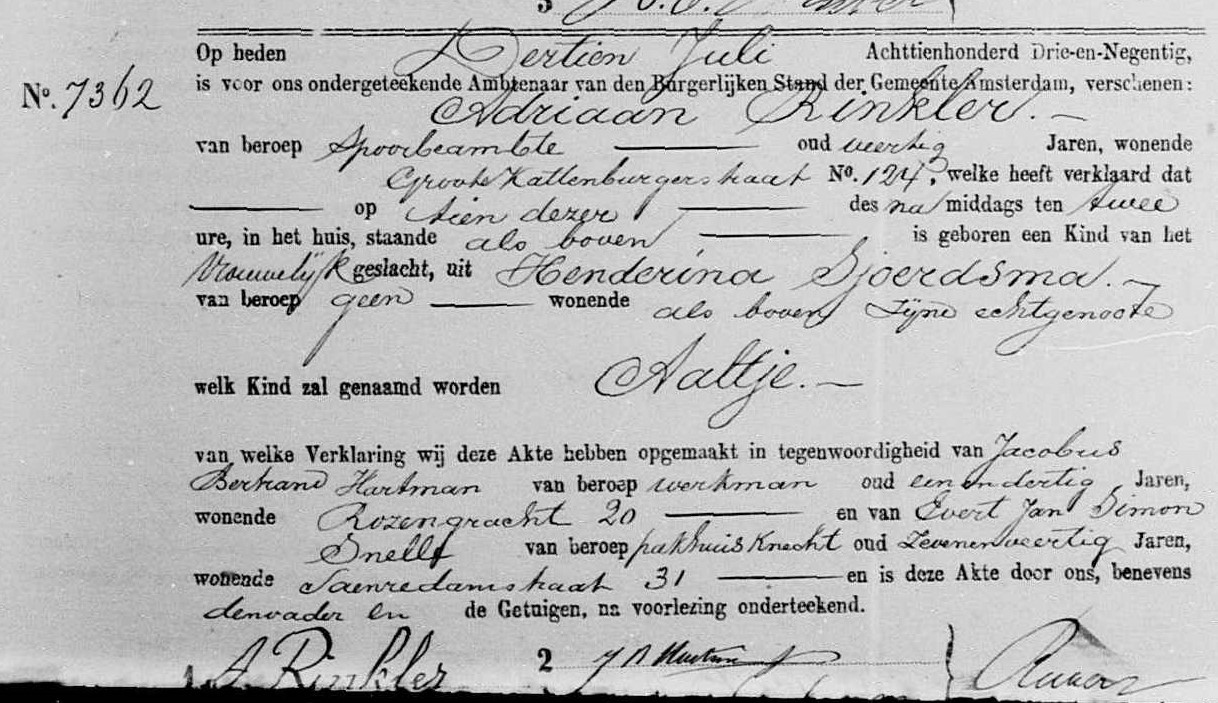 3
Op heden Dertien Juli Achttienhonderd Drie-en-Negentig,
No. 7362 is voor ons ondergeteekende Ambtenaar van den Burgerlijken Stand der Gemeente Amsterdam, verschenen:
Adriaan Rinkler. —
van beroep Spoorbeambte — oud veertig Jaren, wonende
Groote Kattenburgerstraat No. 124, welke heeft verklaard dat
— op tien dezer — des na middags ten twee
ure, in het huis, staande als boven — is geboren een Kind van het
Vrouwelijk geslacht, uit Henderina Sjoerdsma. —
van beroep geen — wonende als boven Zijne echtgenoote
welk Kind zal genaamd worden Aaltje. —
van welke Verklaring wij deze Akte hebben opgemaakt in tegenwoordigheid van Jacobus
Bertrand Hartman van beroep werkman oud eenendertig Jaren,
wonende Rozengracht 20 — en van Evert Jan Simon
Snells van beroep pakhuisknecht oud Zevenenveertig Jaren,
wonende Saenredamstraat 31 — en is deze Akte door ons, benevens
denvader en de Getuigen, na voorlezing onderteekend.
A. Rinkler 2 J B Hartman